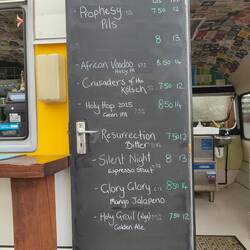 - Prophesy 7.50 12
Pils
8 13
- African Voodoo 8.50 14
- Crusaders of the 7.50 12
Kölsch
- Holy Hop 2015 8.50 14
Green IPA
- Resurrection 7.50 12
Bitter
- Silent Night 8 13
Espresso Stout
- Glory Glory 8.50 14
Mango Jalapeno
- Holy Grail 7.50 12
Golden Ale